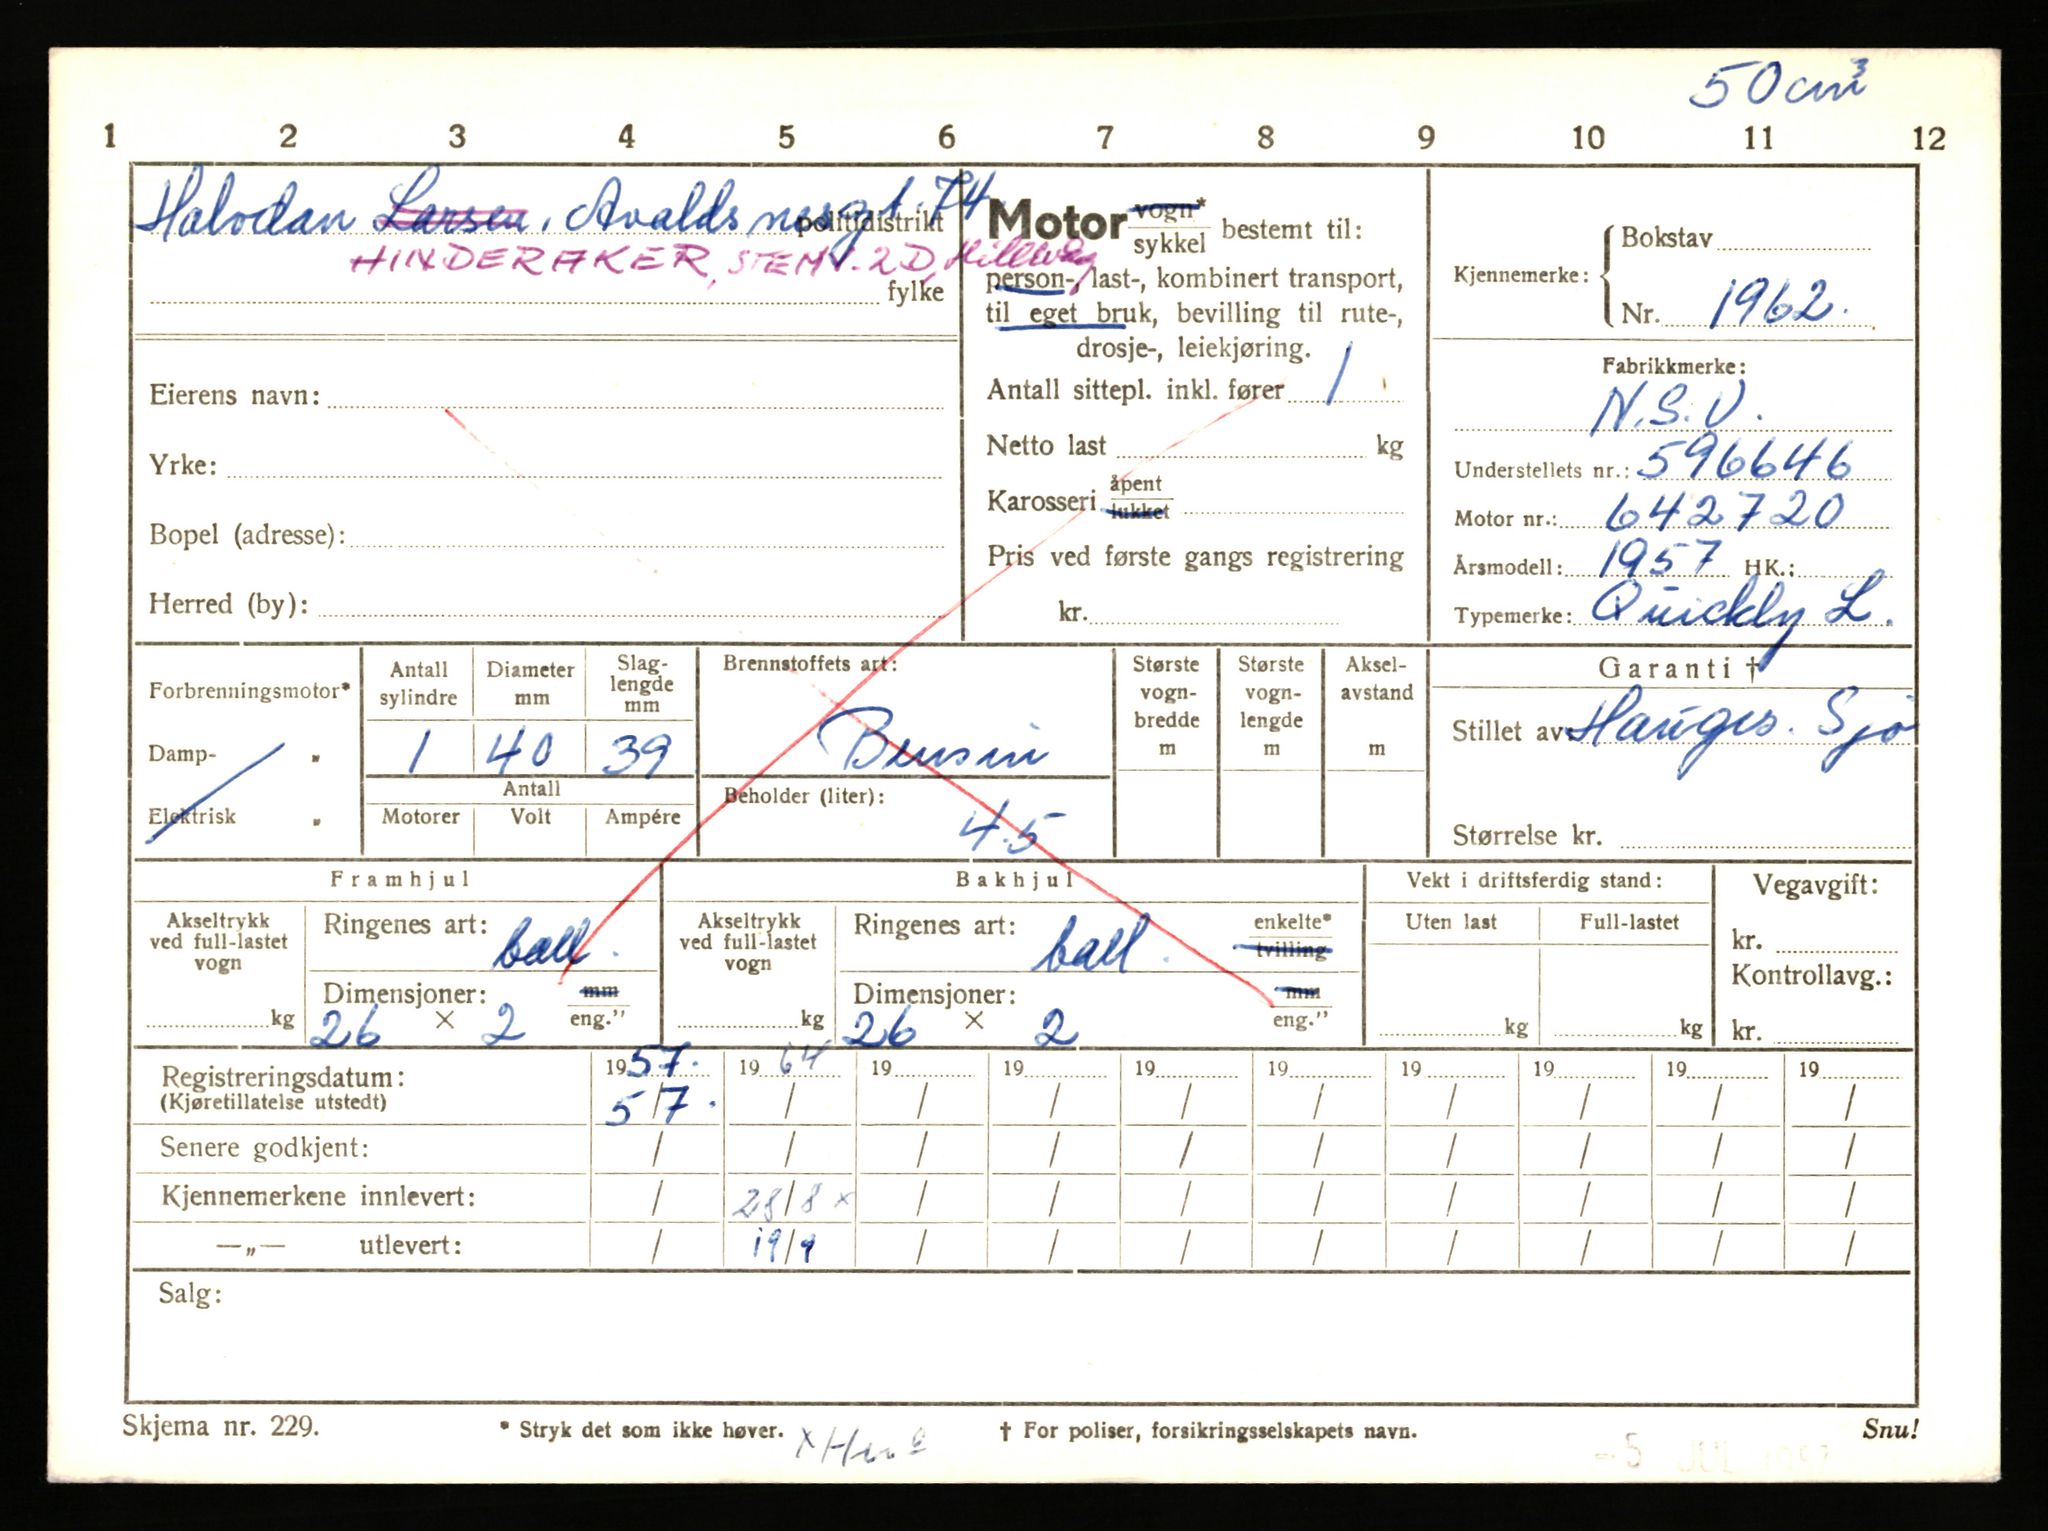 50 cm³
1 2 3 4 5 6 7 8 9 10 11 12
Halvdan Larsen, Avaldsnesgt. 74
politidistrikt
HINDERAKER, STEMV. 2D, Hillevåg
fylke
Eierens navn:
Yrke:
Bopel (adresse):
Herred (by):
Motor vogn* sykkel bestemt til:
person-, last-, kombinert transport,
til eget bruk, bevilling til rute-,
drosje-, leiekjøring.
Antall sittepl. inkl. fører 1
Netto last kg
Karosseri åpent lukket
Pris ved første gangs registrering
kr.
Kjennemerke: Bokstav
Nr. 1962.
Fabrikkmerke:
N.S.U.
Understellets nr.: 596646
Motor nr.: 642720
Årsmodell: 1957 HK.:
Typemerke: Quickly L.
Forbrenningsmotor*
Damp- „
Elektrisk „
Antall sylindre
Diameter mm
Slag-lengde mm
1 40 39
Antall
Motorer Volt Ampére
Brennstoffets art:
Bensin
Beholder (liter):
4.5
Største vogn-bredde m
Største vogn-lengde m
Aksel-avstand m
Garanti †
Stillet av: Hauges. Sjø
Størrelse kr.
Framhjul
Akseltrykk ved full-lastet vogn
kg
Ringenes art: ball.
Dimensjoner: mm eng."
26 × 2
Bakhjul
Akseltrykk ved full-lastet vogn
kg
Ringenes art: ball. enkelte* tvilling
Dimensjoner: mm eng."
26 × 2
Vekt i driftsferdig stand:
Uten last Full-lastet
kg kg
Vegavgift:
kr.
Kontrollavg.:
kr.
Registreringsdatum: 1957. 1964 19 19 19 19 19 19 19 19
(Kjøretillatelse utstedt) 5/7. / / / / / / / / /
Senere godkjent: / / / / / / / / / /
Kjennemerkene innlevert: / 28/8 x / / / / / / / /
—„— utlevert: / 19/9 / / / / / / / /
Salg:
Skjema nr. 229.
* Stryk det som ikke høver.
† For poliser, forsikringsselskapets navn.
Snu!
-5 JUL 1957